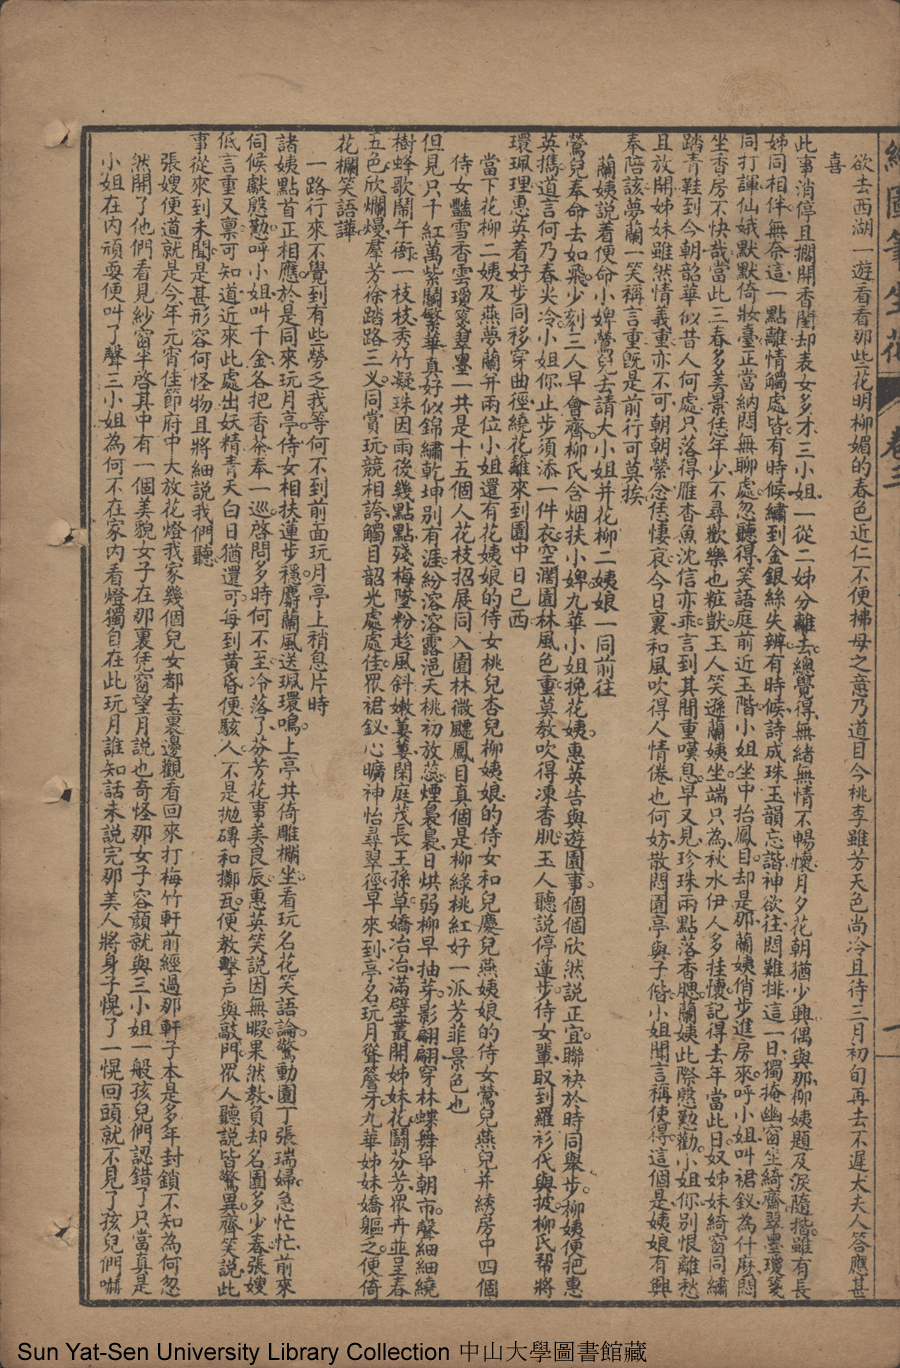 繪圖筆生花 卷三 一
欲去西湖一遊看看那些花明柳媚的春色近仁不便拂母之意乃道目今桃李雖芳天色尚冷且待三月初旬再去不遲太夫人答應甚
喜
此事消停且擱開香閨却表女多才三小姐一從二姊分離去總覺得無緒無情不暢懷月夕花朝猶少興偶與那柳姨題及淚隨揩雖有長
姊同相伴無奈這一點離情觸處皆有時候繡到金銀絲失辨有時候詩成珠玉韻忘諧神欲往悶難排這一日獨掩幽窗坐綺齋翠墨瓊箋
同打諢仙娥默默倚妝臺正當納悶無聊處忽聽得笑語庭前近玉階小姐坐中抬鳳目却是那蘭姨俏步進房來呼小姐叫裙釵為什麽悶
坐香房不快哉當此三春多美景恁年少不尋歡樂也粧獃玉人笑遜蘭姨坐端只為秋水伊人多挂懷記得去年當此日奴姊妹綺窗同繡
踏青鞋到今朝韶華似昔人何處只落得雁杳魚沈信亦乖言到其間重嘆息早又見珍珠兩點落香腮蘭姨此際慇懃勸小姐你别恨離愁
且放開姊妹雖然情義重亦不可朝朝縈念恁悽哀今日裏和風吹得人情倦也何妨散悶園亭與子偕小姐聞言稱使得這個是姨娘有興
奉陪該夢蘭一笑稱言重既是前行可莫挨
蘭姨説着便命小婢鶯兒去請大小姐并花柳二姨娘一同前往
鶯兒奉命去如飛少刻三人早會齊柳氏含烟扶小婢九華小姐挽花姨惠英告與遊園事個個欣然説正宜聯袂於時同舉步柳姨便把惠
英攜道言何乃春火冷小姐你止步須添一件衣空濶園林風色重莫教吹得凍香肌玉人聽説停蓮步侍女輩取到羅衫代與披柳氏帮將
環珮理惠英着好步同移穿曲徑繞花離來到園中日已西
當下花柳二姨及燕夢蘭并兩位小姐還有花姨娘的侍女桃兒杏兒柳姨娘的侍女和兒慶兒燕姨娘的侍女鶯兒燕兒并綉房中四個
侍女豔雪香雲瓊箋翠墨一共是十五個人花枝招展同入園林微飃鳳目真個是柳綠桃紅好一派芳菲景色也
但見只千紅萬紫鬭繁華真好似錦繡乾坤别有涯紛溶溶露浥夭桃初放蕊煙裊裊日烘弱柳早抽芽影翩翩穿林蝶舞爭朝市聲細細繞
樹蜂歌鬧午衙一枝枝秀竹凝珠因雨後幾點點殘梅墜粉趁風斜嫩萋萋閑庭茂長王孫草嬌冶冶滿壁叢開姊妹花鬭芬芳眾卉並呈春
五色欣爛熳羣芳徐踏路三义同賞玩競相誇觸目韶光處處佳眾裙釵心曠神怡尋翠徑早來到亭名玩月聳簷牙九華姊妹嬌軀之便倚
花欄笑語譁
一路行來不覺到有些勞乏我等何不到前面玩月亭上稍息片時
諸姨點首正相應於是同來玩月亭侍女相扶蓮步穩麝蘭風送珮環鳴上亭共倚雕欄坐看玩名花笑語論驚動園丁張瑞婦急忙忙前來
伺候獻慇懃呼小姐叫千金各把香茶奉一巡啓問多時何不至冷落了芬芳花事美良辰惠英笑説因無暇果然教負却名園多少春張嫂
低言重又禀可知道近來此處出妖精青天白日猶還可每到黃昏便駭人不是拋磚和擲瓦便教擊戶與敲門眾人聽説皆驚異齊笑説此
事從來到未聞是甚形容何怪物且將細説我們聽
張嫂便道就是今年元宵佳節府中大放花燈我家幾個兒女都去裏邊觀看回來打梅竹軒前經過那軒子本是多年封鎖不知為何忽
然開了他們看見紗窗半啓其中有一個美貌女子在那裏凭窗望月説也奇怪那女子容顏就與三小姐一般孩兒們認錯了只當真是
小姐在内頑耍便叫了聲三小姐為何不在家内看燈獨自在此玩月誰知話未説完那美人將身子愰了一愰回頭就不見了孩兒們嚇
Sun Yat-Sen University Library Collection 中山大學圖書館藏